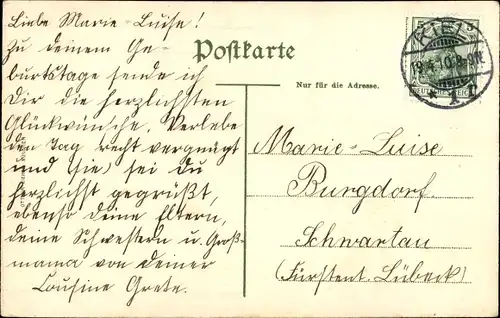 Liebe Marie-Luise!
Zu deinem Ge-
burtstage sende ich
Dir die herzlichsten
Glückwünsche. Verlebe
den Tag recht vergnügt
und (sie) sei du
herzlichst gegrüßt,
ebenso deine Eltern,
deine Schwestern u. Groß-
mama von deiner
Cousine Grete.
Postkarte
Nur für die Adresse.
5 5
KIEL
18.4.10.8-9N
DEUTSCHES REICH
* 1 f
Marie-Luise
Burgdorf
Schwartau
(Fürstent. Lübeck)